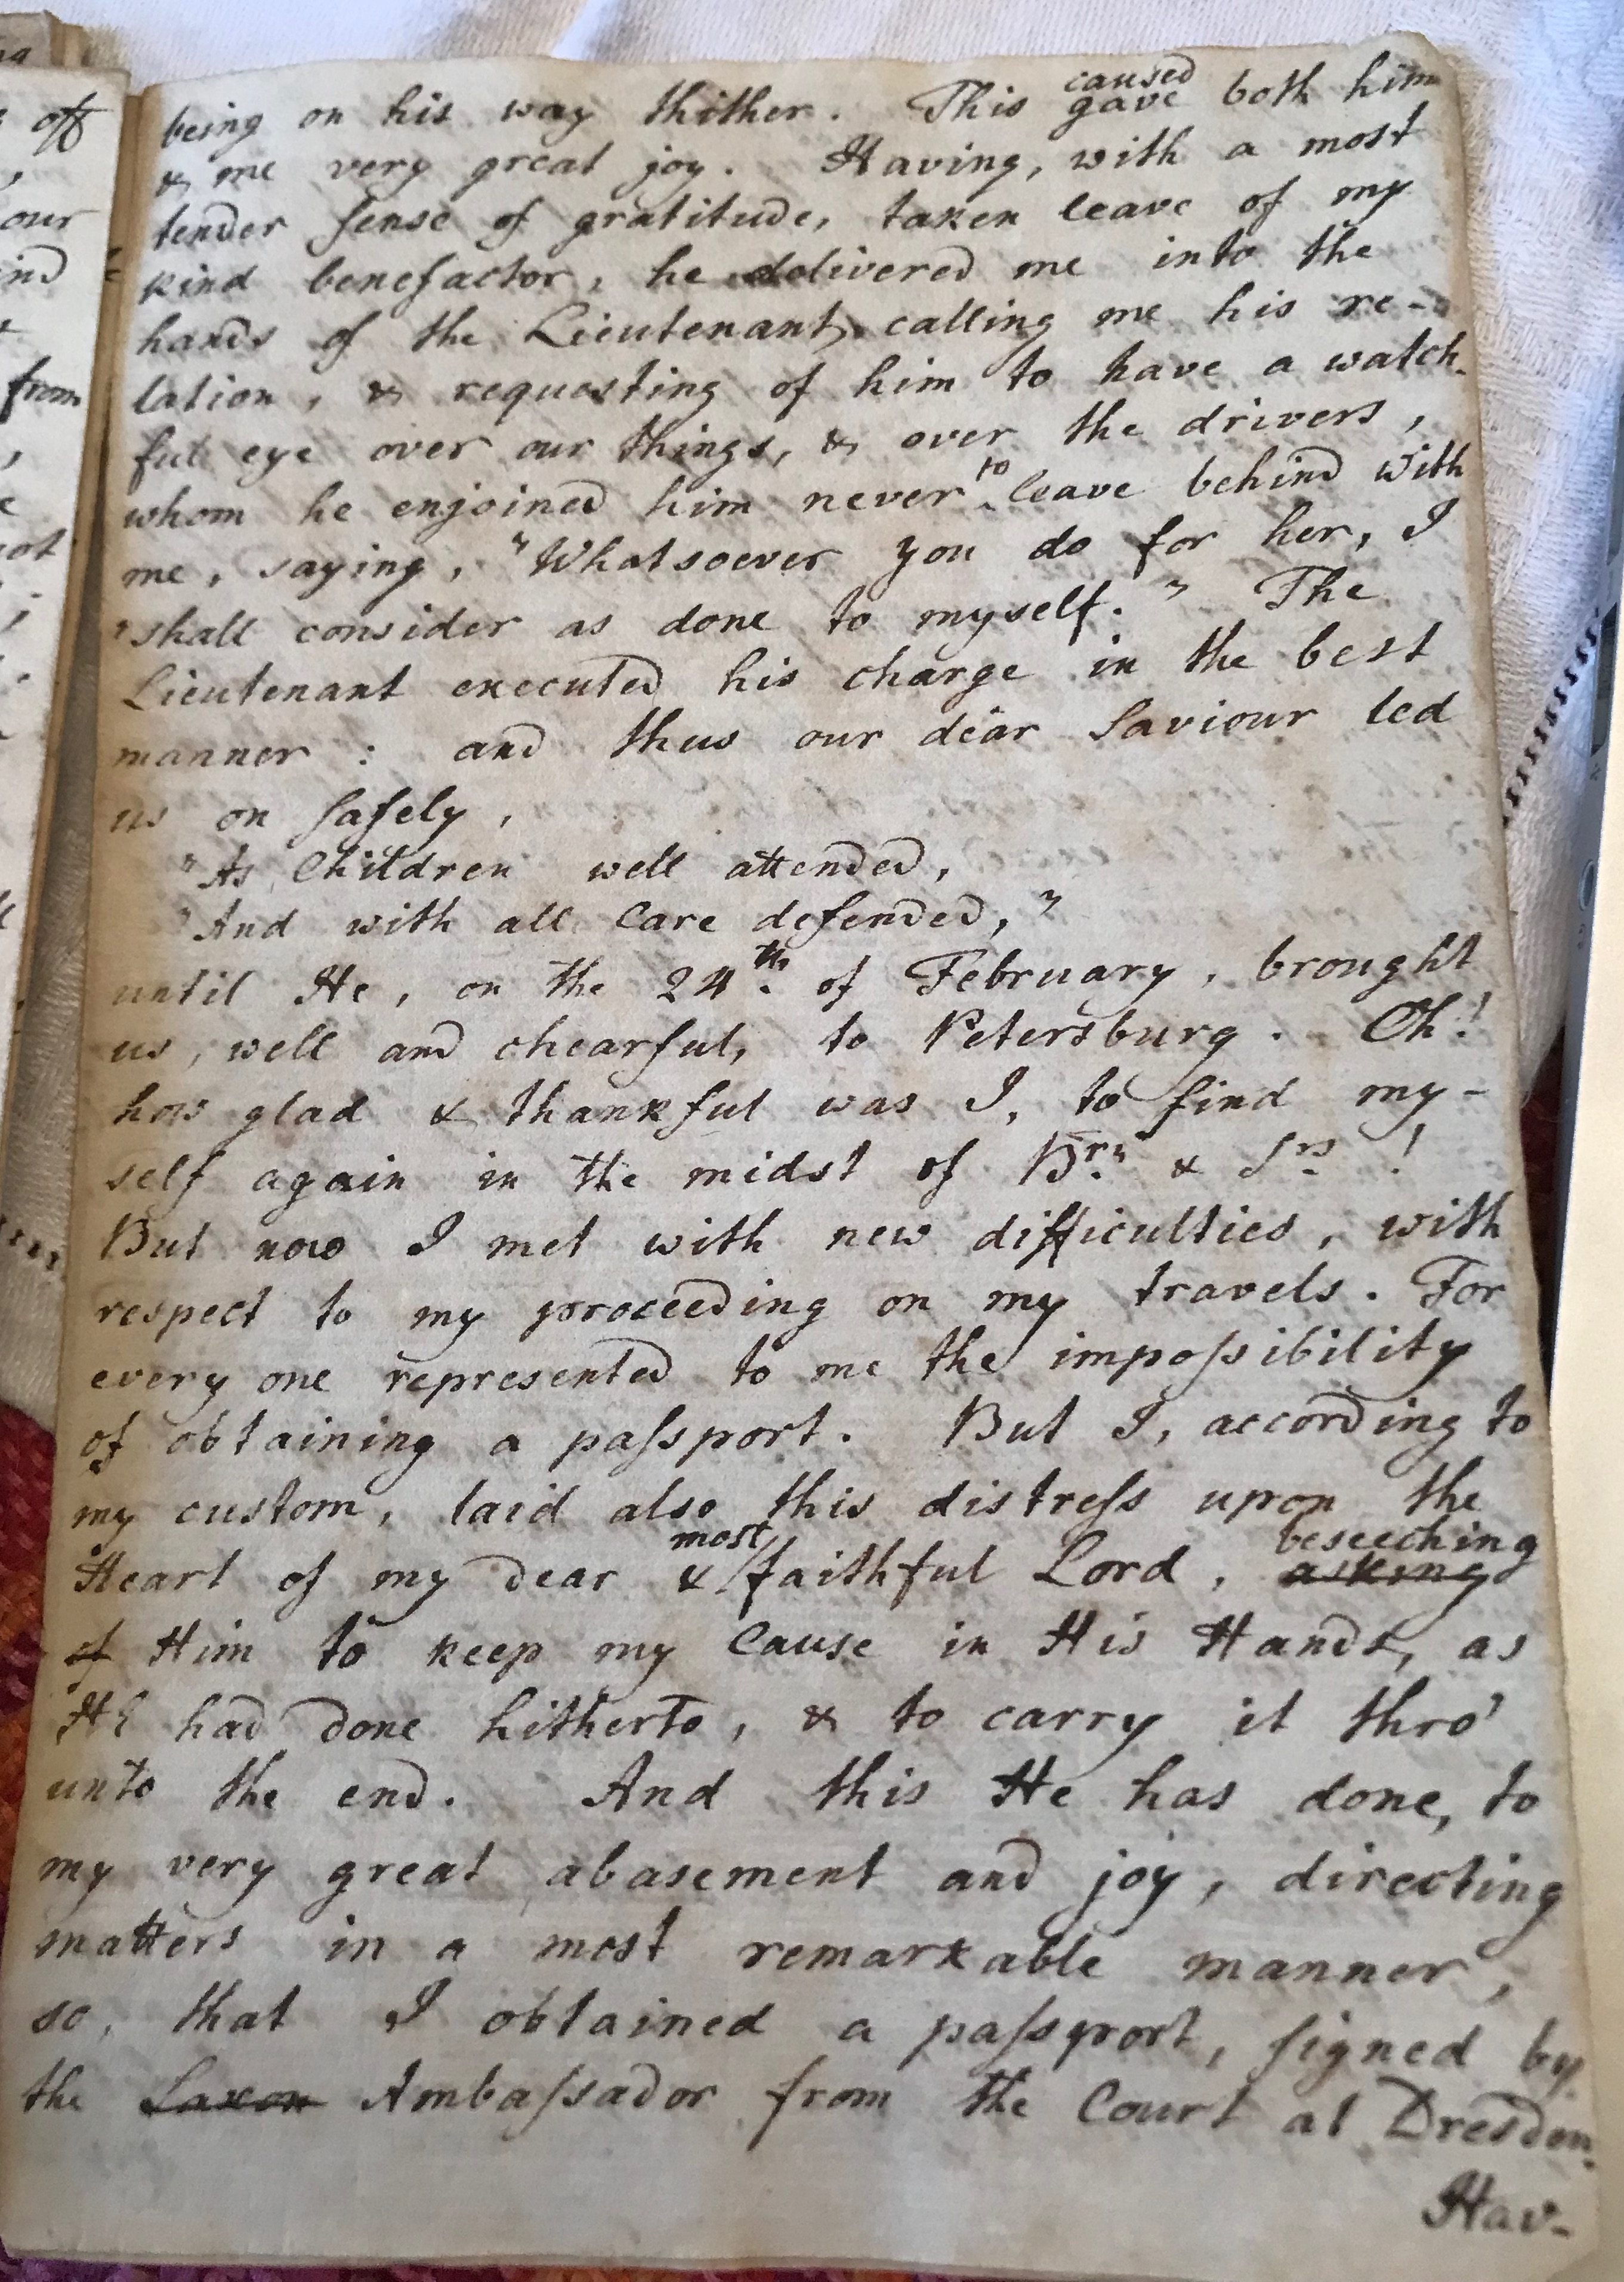 being on his way thither. This gave caused both him
& me very great joy. Having, with a most
tender sense of gratitude, taken leave of my
kind benefactor, he delivered me into the
hands of the Lieutenant, calling me his re-
lation, & requesting of him to have a watch-
ful eye over our things, & over the drivers,
whom he enjoined him never to leave behind with
me, saying, "Whatsoever you do for her, I
"shall consider as done to myself." The
Lieutenant executed his charge in the best
manner: and thus our dear Saviour led
us on safely,
"As Children well attended,
"And with all Care defended,"
until He, on the 24th. of February, brought
us, well and chearful, to Petersburg. Oh!
how glad & thankful was I, to find my-
self again in the midst of Brs & Srs!
But now I met with new difficulties, with
respect to my proceeding on my travels. For
every one represented to me the impossibility
of obtaining a passport. But I, according to
my custom, laid also this distress upon the
Heart of my dear & most faithful Lord, asking beseeching
of Him to keep my Cause in His Hands, as
He had done hitherto, & to carry it thro'
unto the end. And this He has done, to
my very great abasement and joy, directing
matters in a most remarkable manner,
so, that I obtained a passport, signed by
the Saxon Ambassador from the Court at Dresden.
Hav-
off
our
ind
from
not